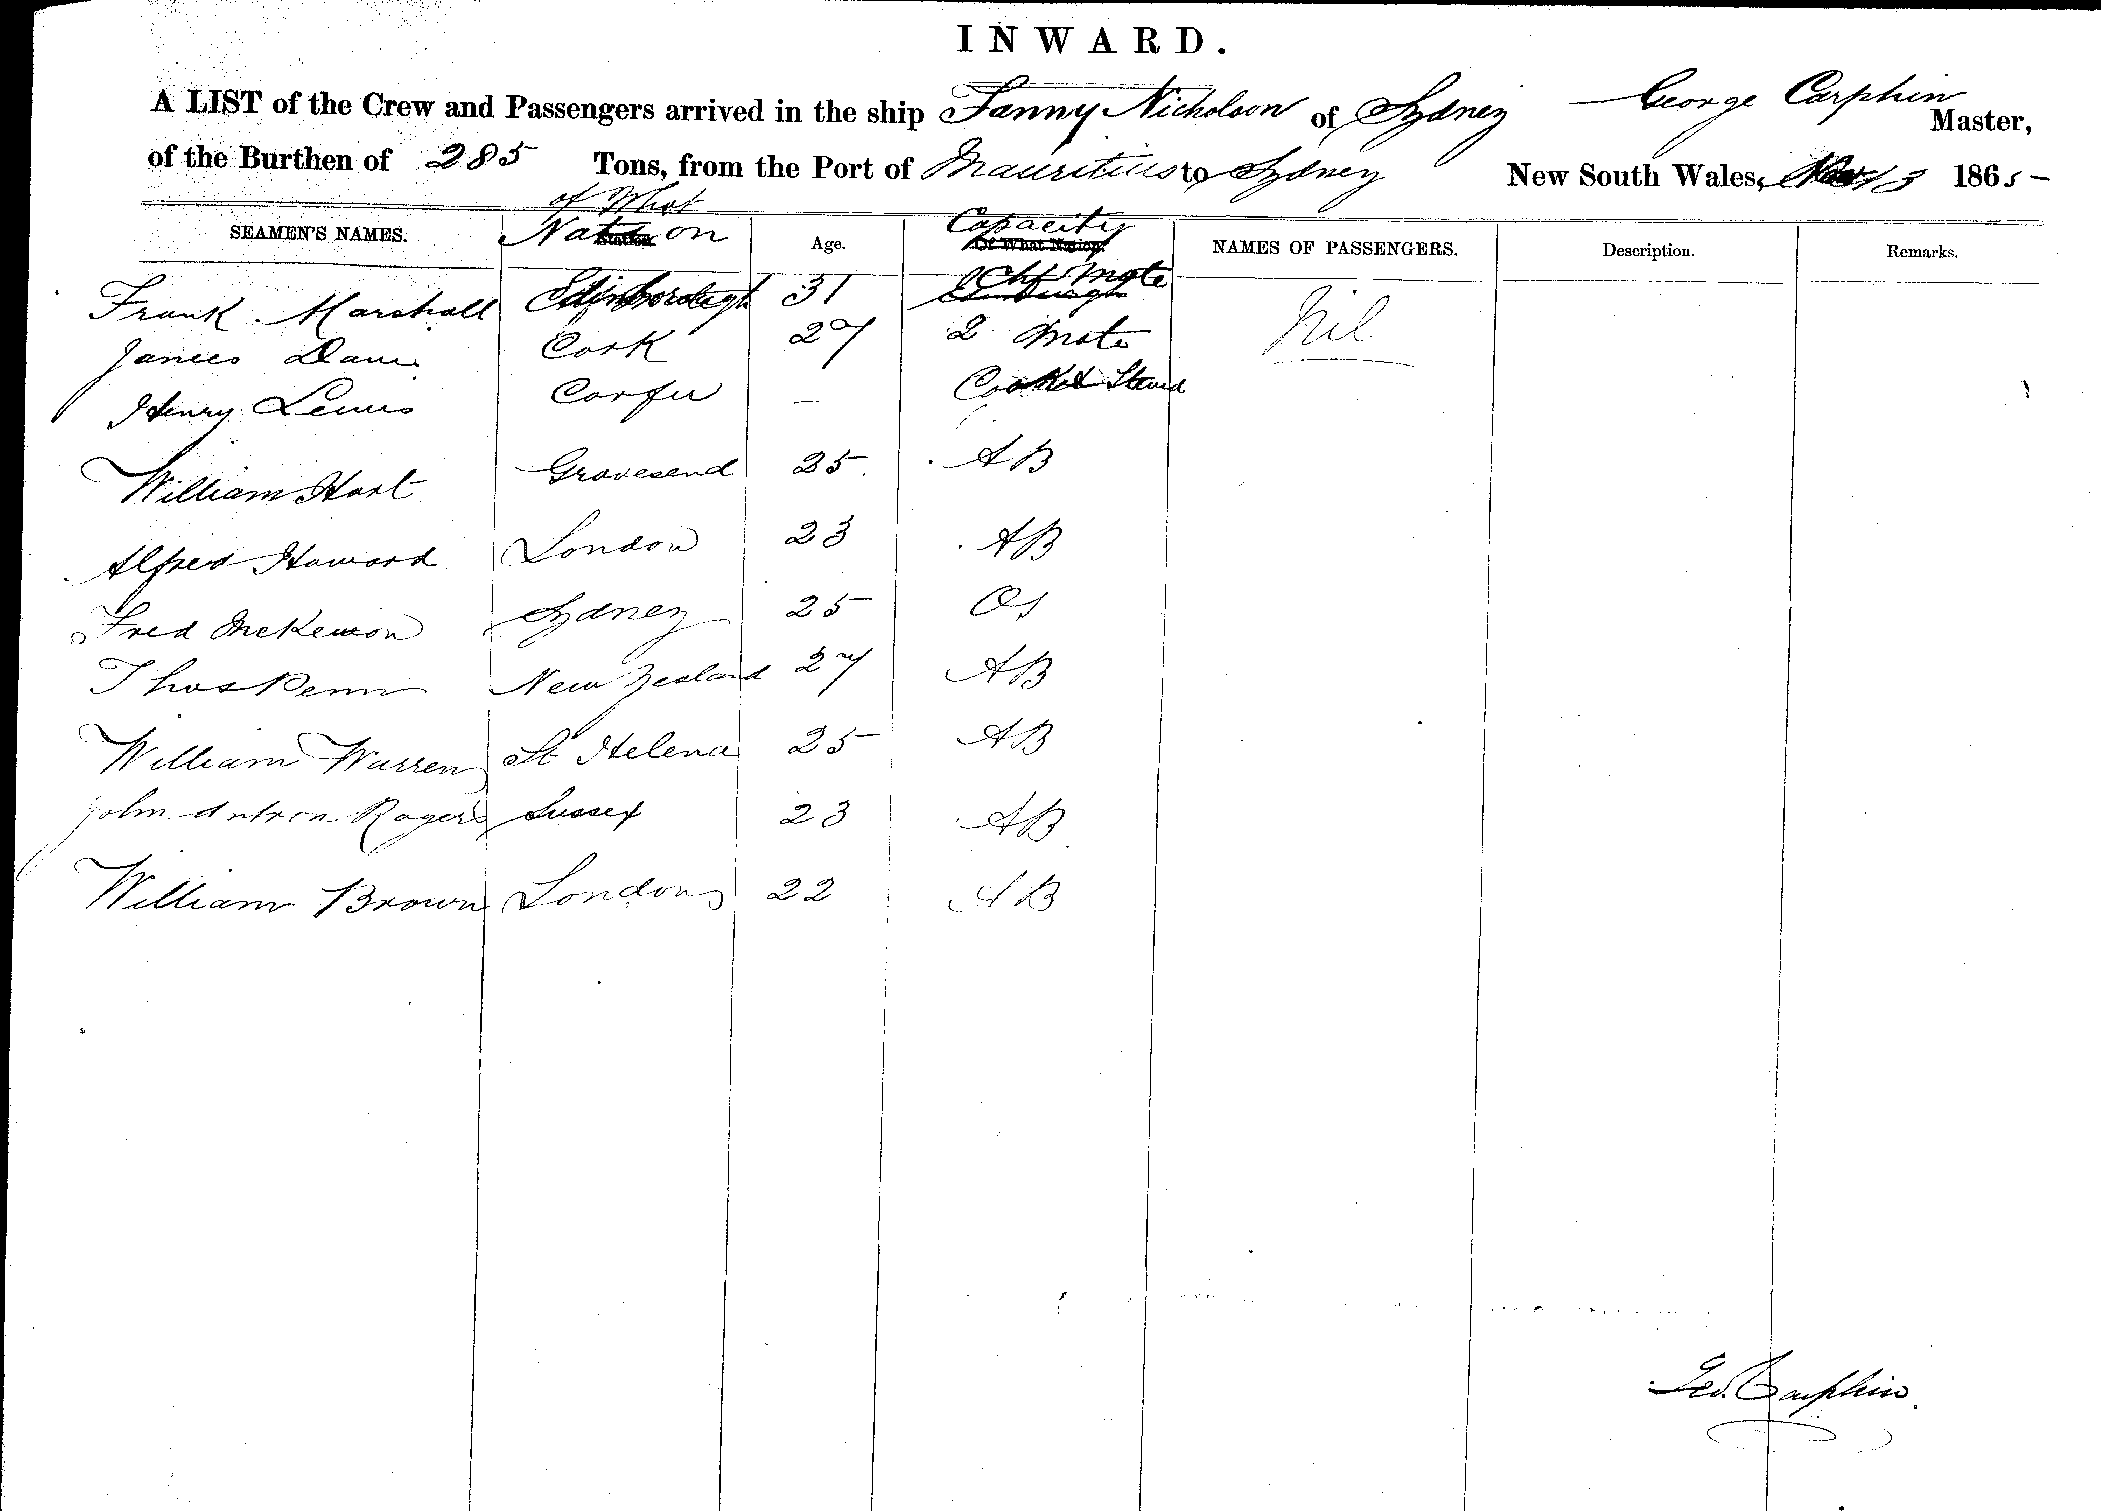 INWARD.
A LIST of the Crew and Passengers arrived in the ship Fanny Nicholson of Sydney George Carphin Master,
of the Burthen of 285 Tons, from the Port of Mauritius to Sydney New South Wales, Nov 13 1865-
of What
SEAMEN'S NAMES. Nation Age. Capacity Of What Nation NAMES OF PASSENGERS. Description. Remarks.
Frank Marshall Edinborough 31 Chf Mate Nil
James Cork 27 2 Mate
Henry Lewis Corfu - Cook & Steward
William Hart Gravesend 25 AB
Alfred Howard London 23 AB
Fred McKewon Sydney 25 OS
Thos Penn New Zealand 27 AB
William Warren St Helena 25 AB
John Rogers Sussex 23 AB
William Brown London 22 AB
Geo. Carphin